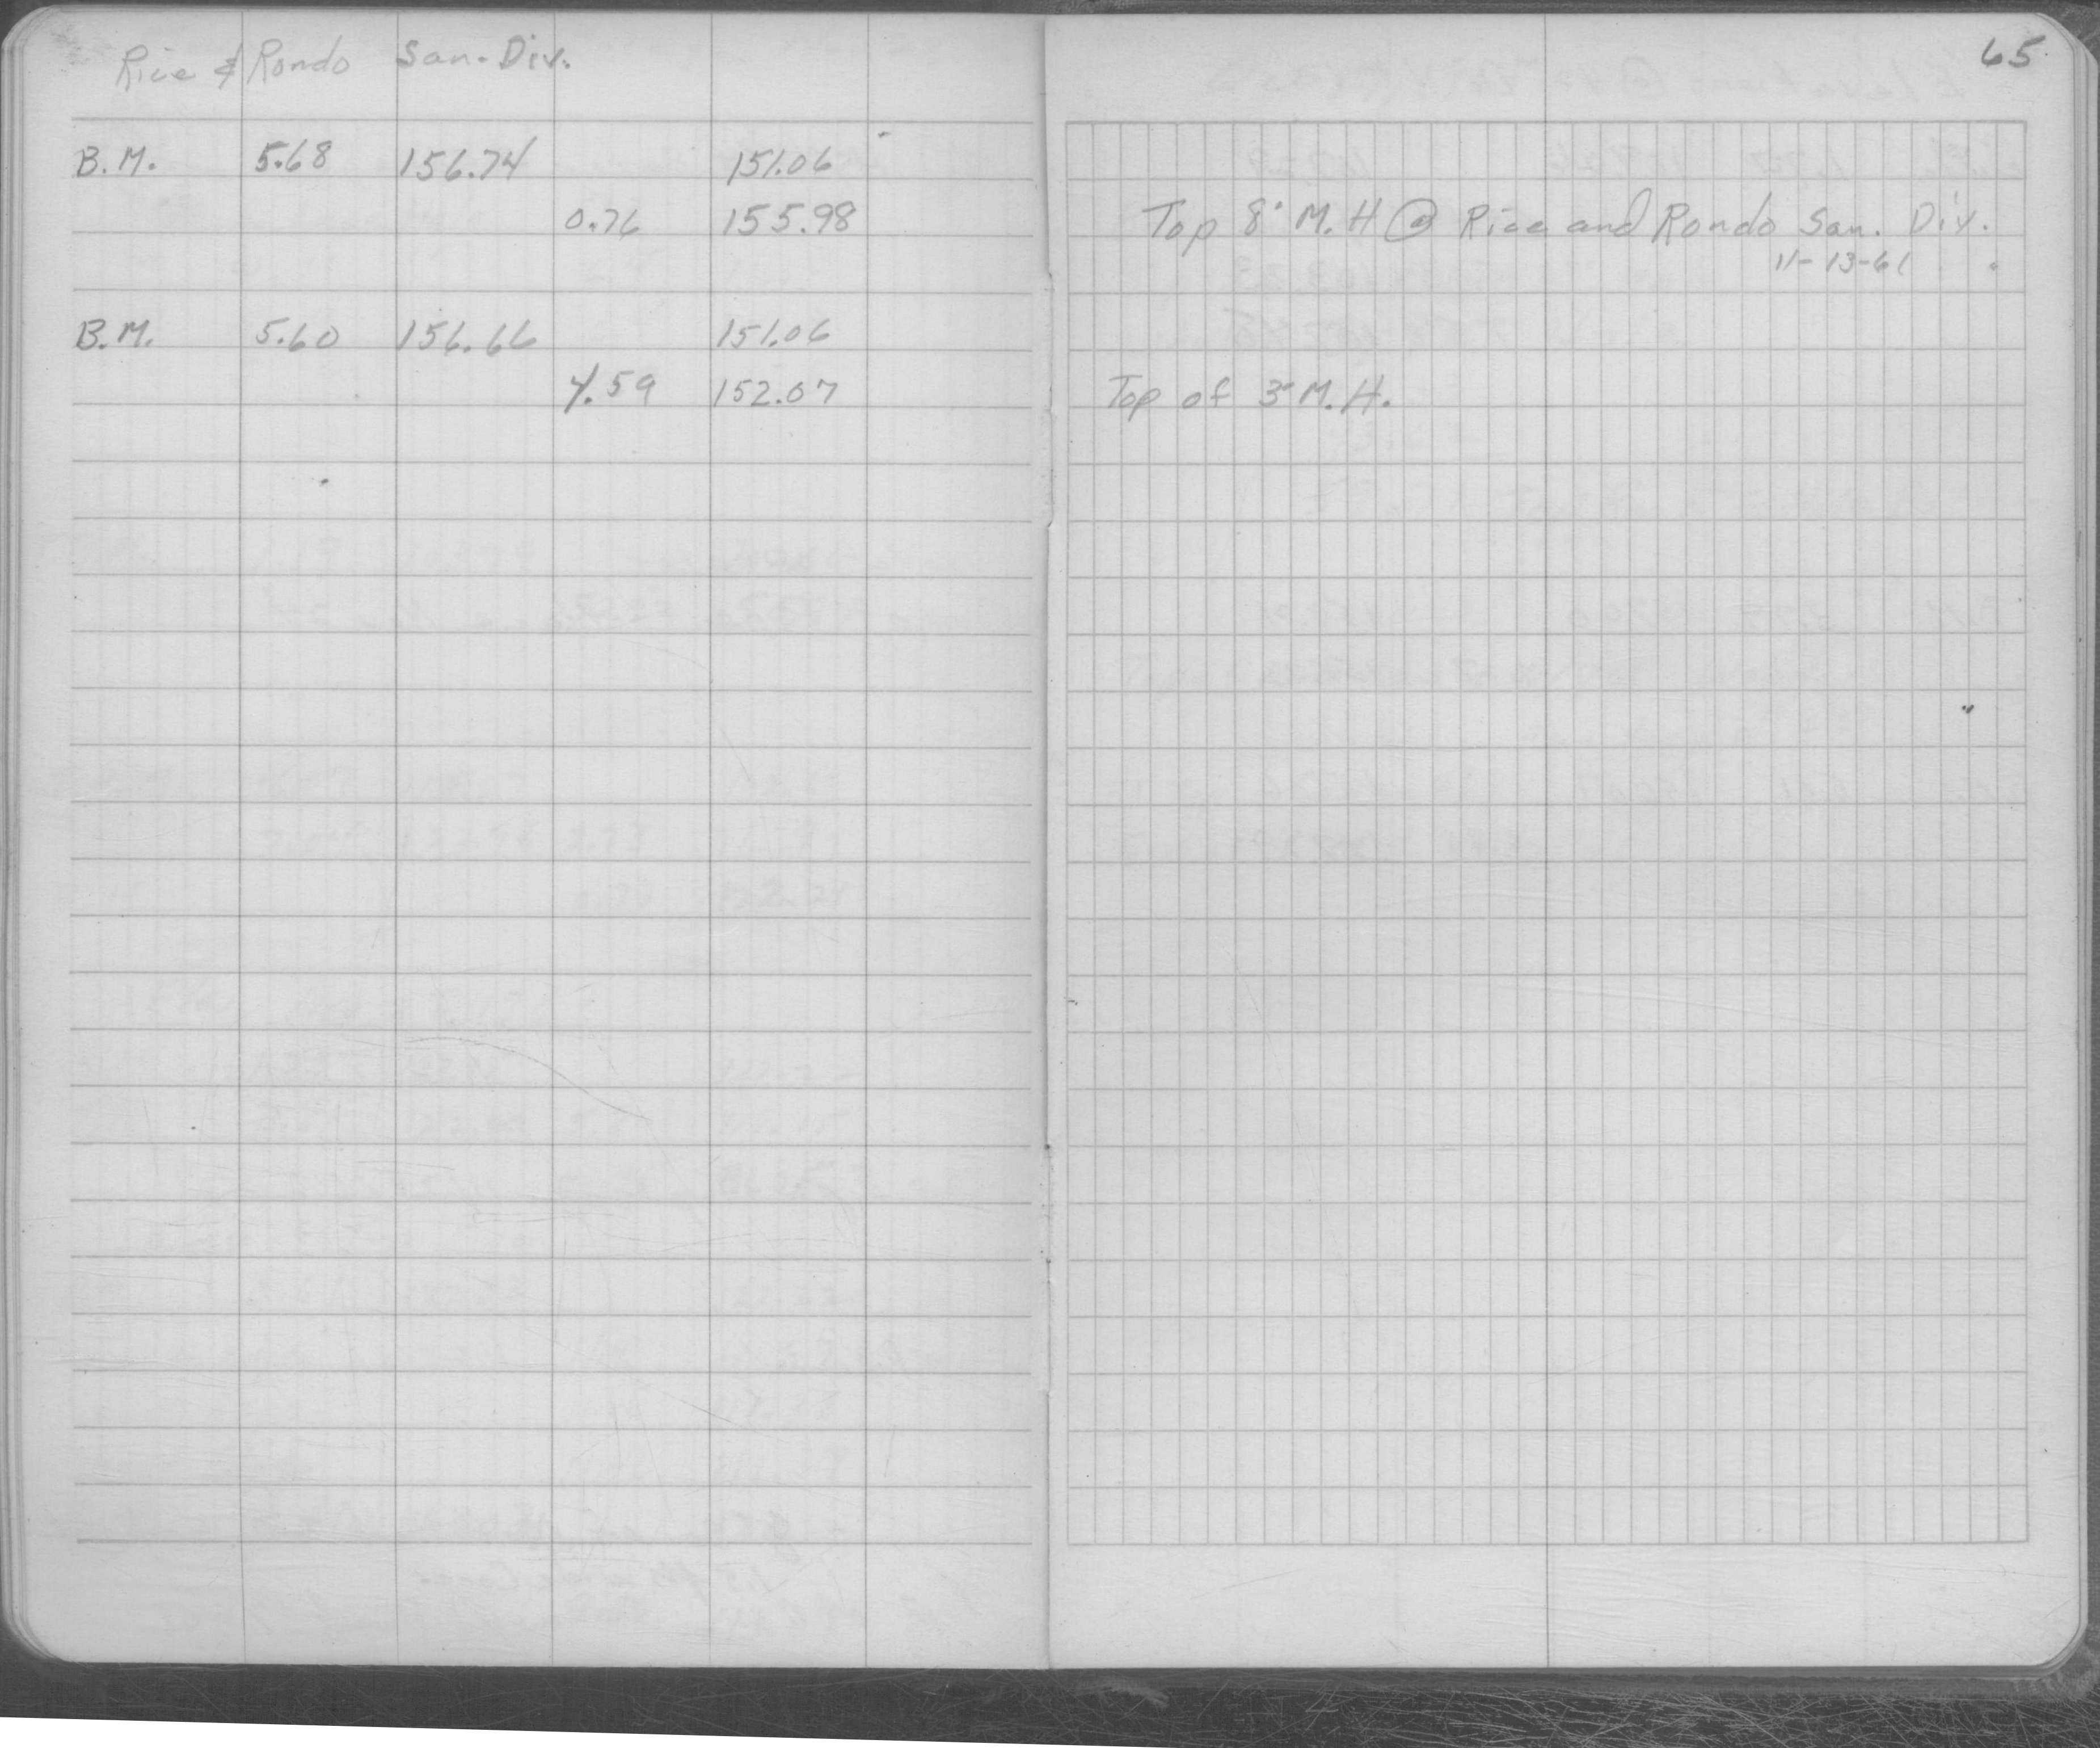 Rice & Rondo San. Div.
65
B.M. 5.68 156.74 151.06
0.76 155.98 Top 8" M.H @ Rice and Rondo San. Div.
11-13-61
B.M. 5.60 156.66 151.06
4.59 152.07 Top of 3" M.H.